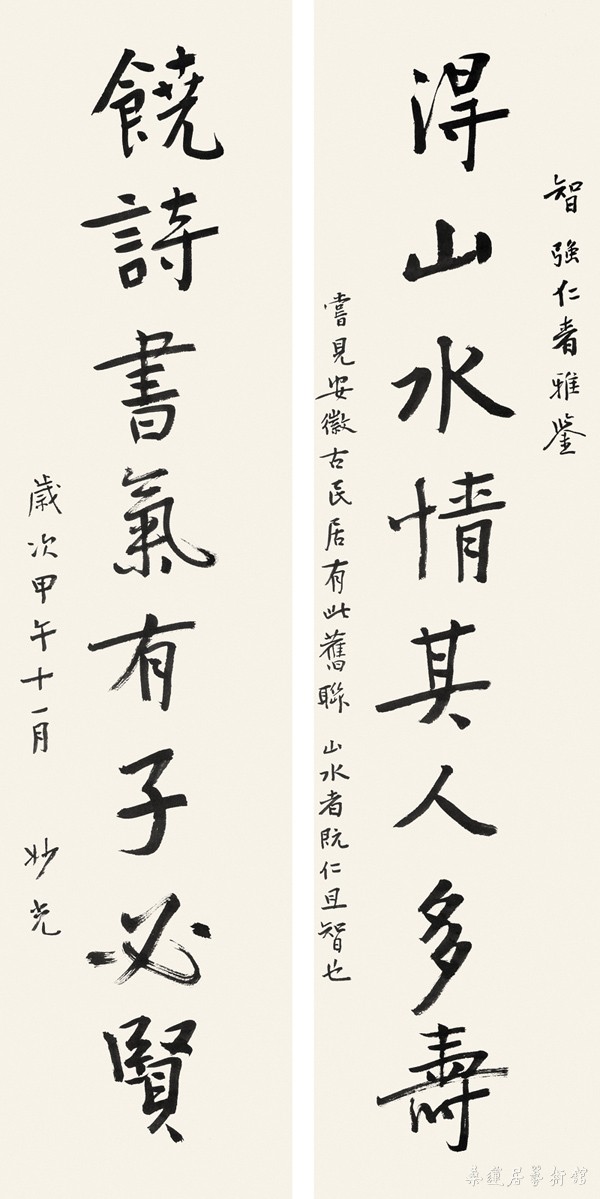 智强仁者雅鑒
得山水情其人多壽
嘗見安徽古民居有此舊聯 山水者既仁且智也
饒詩書氣有子必賢
歲次甲午十一月 妙光
桑蓮居藝術館